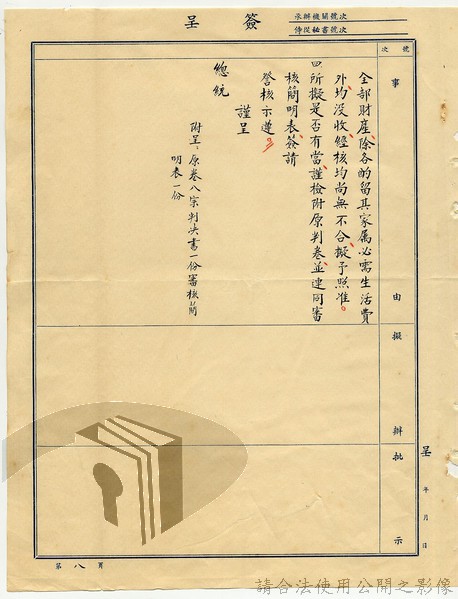 簽呈
承辦機關號次
侍從秘書號次
號次
事由
擬辦
批示
全部財產、除各酌留其家屬必需生活費
外、均沒收、經核均尚無不合、擬予照准。
四所擬是否有當、謹檢附原判卷、並連同審
核簡明表、簽請
詧核示遵。
謹呈
總統
附呈：原卷八宗判決書一份審核簡
明表一份
呈 年 月 日
第八頁
請合法使用公開之影像